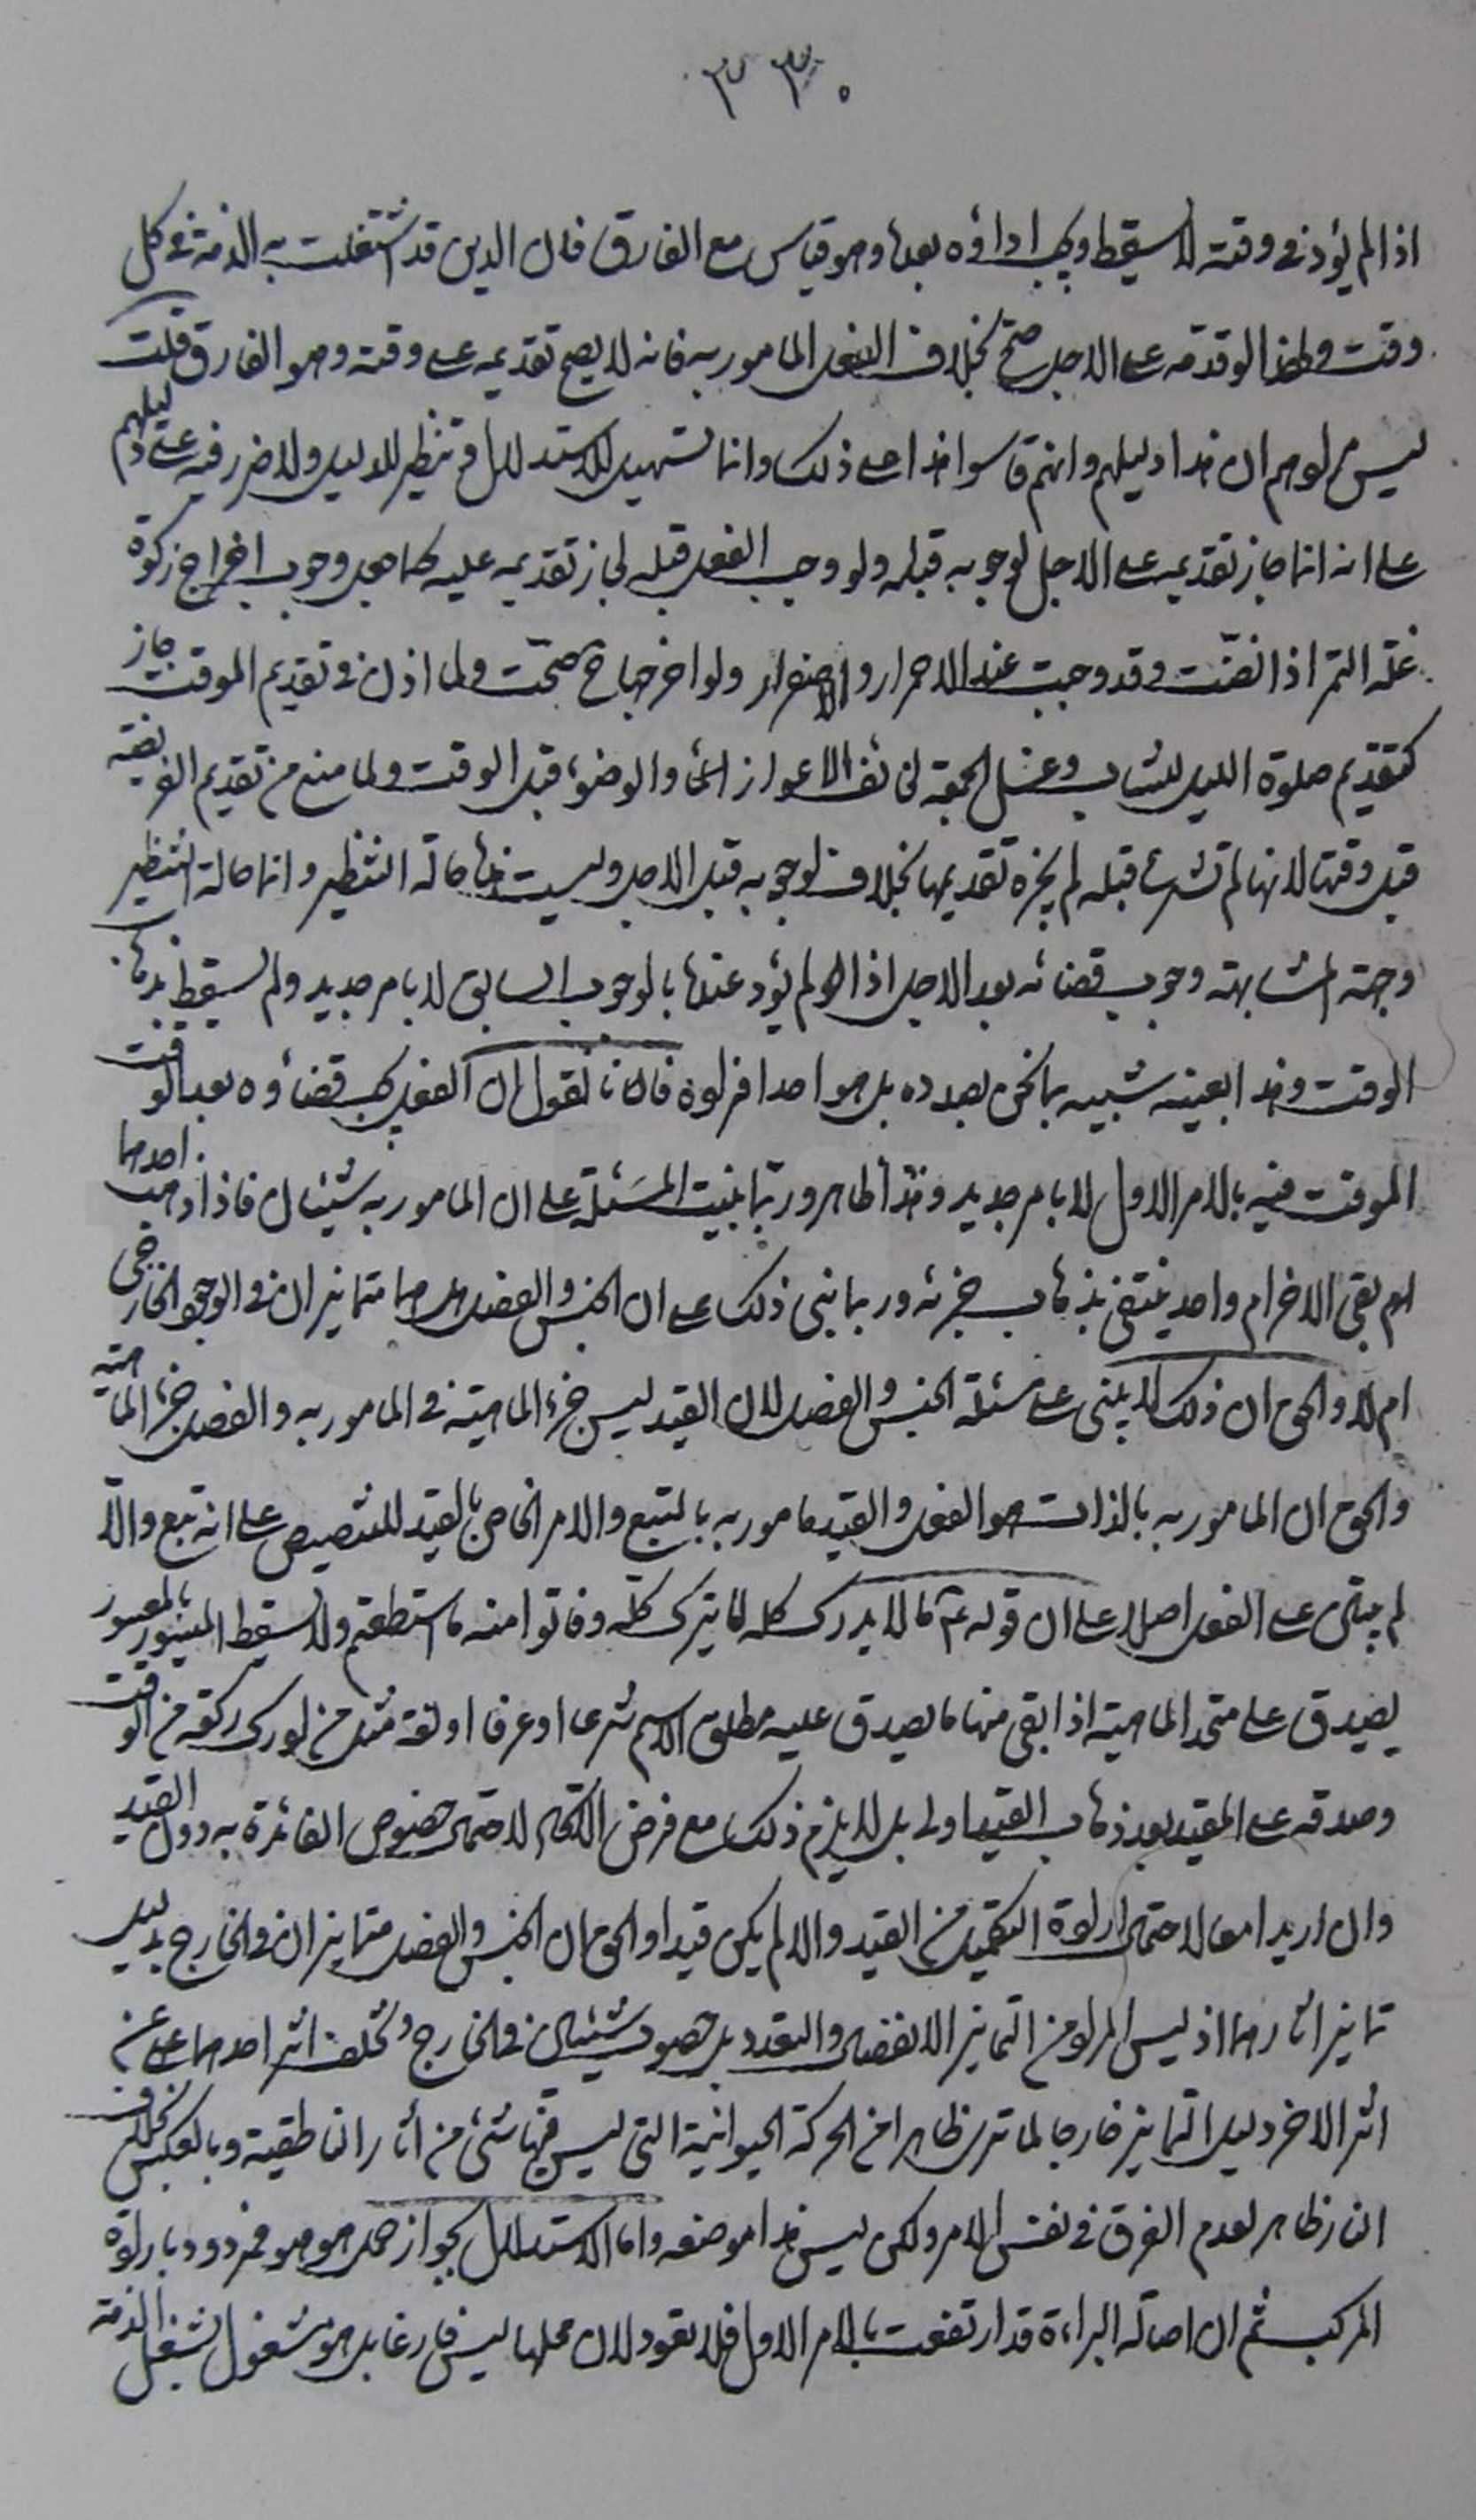 ٣٣٠
اذا لم يؤد في وقته لا يسقط ويجب اداؤه بعدها وهو قياس مع الفارق فان الدين قد اشتغلت به الذمة في كل
وقت ولهذا لو قدمه على الاجل صح بخلاف الفعل المامور به فانه لا يصح تقديمه على وقته وهو الفارق قلت
ليس مرادهم ان هذا دليلهم وانهم قاسوا هذا على ذلك وانما تسهيل للاستدلال وتنظير للدليل ولا ضرر فيه على دليلهم
على انه انما جاز تقديمه على الاجل لوجوبه قبله ولو وجب الفعل قبله لجاز تقديمه عليه كما يجد وجوب اخراج زكوة
غلة التمر اذا نضت وقد وجبت عند الاحمرار والاصفرار ولو اخرجها ح صحت ولما اذن في تقديم الموقت جاز
كتقديم صلوة الليل للشاب وغسل الجمعة لخائف اعواز الماء والوضوء قبل الوقت ولما منع من تقديم الفريضة
قبل وقتها لانها لم تشرع قبله لم يجزه تقديمها بخلاف لوجوبه قبل الاجل وليست هذه حالة التنظير وانما حالة التنظير
وجهة المشابهة وجوب قضائه بعد الاجل اذا لم يؤد عندها بالوجوب السابق لا بامر جديد ولم يسقط بذهاب
الوقت وهذا بعينه شبيه بما نحن بصدده بل هو احد افراده فاننا نقول ان الفعل يجب قضاؤه بعد الوقت
الموقت فيه بالامر الاول لا بامر جديد وهذا ظاهر وربما بنيت المسئلة على ان المامور به شيئان فاذا ذهب احدهما
لم يبقى الاخر ام واحد ينتفي بذهاب جزئه وربما بنى ذلك على ان الجنس والفصل هل هما متمايزان في الوجود الخارجي
ام لا والحق ان ذلك لا يبنى على مسئلة الجنس والفصل لان القيد ليس جزء الماهية في المامور به والفصل جزء الماهية
والحق ان المامور به بالذات هو الفعل والقيد مامور به بالتبع والامر الخاص بالقيد للتنصيص على انه تبع والا
لم يبقى على الفعل اصلا على ان قوله ع ما لا يدرك كله لا يترك كله وفاتوا منه ما استطعتم ولا يسقط الميسور بالمعسور
يصدق على متحد الماهية اذا بقى منها ما يصدق عليه مطلق الاسم شرعا او عرفا او لغة مثل من ادرك ركعة من الوقت
وصدقه على المقيد بعد ذهاب القيد اولى بل لا يلزم ذلك مع فرض الاتحاد لاحتمال خصوص الفائدة به دون القيد
وان اريد امعا لاحتمال ارادة التكميل من القيد والا لم يكن قيدا والحق ان الجنس والفصل متمايزان في الخارج بدليل
تمايز اثارهما اذ ليس المراد من التمايز الانفصال والتعدد بل حصول شيئين في الخارج وتخلف اثر احدهما عن
اثر الاخر دليل التمايز خارجا لما ترى ظاهرا من الحركة الحيوانية التي ليس فيها شئ من أثار الناطقية وبالعكس بخلاف
النار ظاهر لعدم الفرق في نفس الامر ولكن ليس هذا موضعه واما الاستدلال بجواز حمل هو هو فمردود بارادة
المركب ثم ان اصالة البراءة قد ارتفعت بالامر الاول فلا تعود لان محلها ليس فارغا بل هو مشغول بشغل الذمة